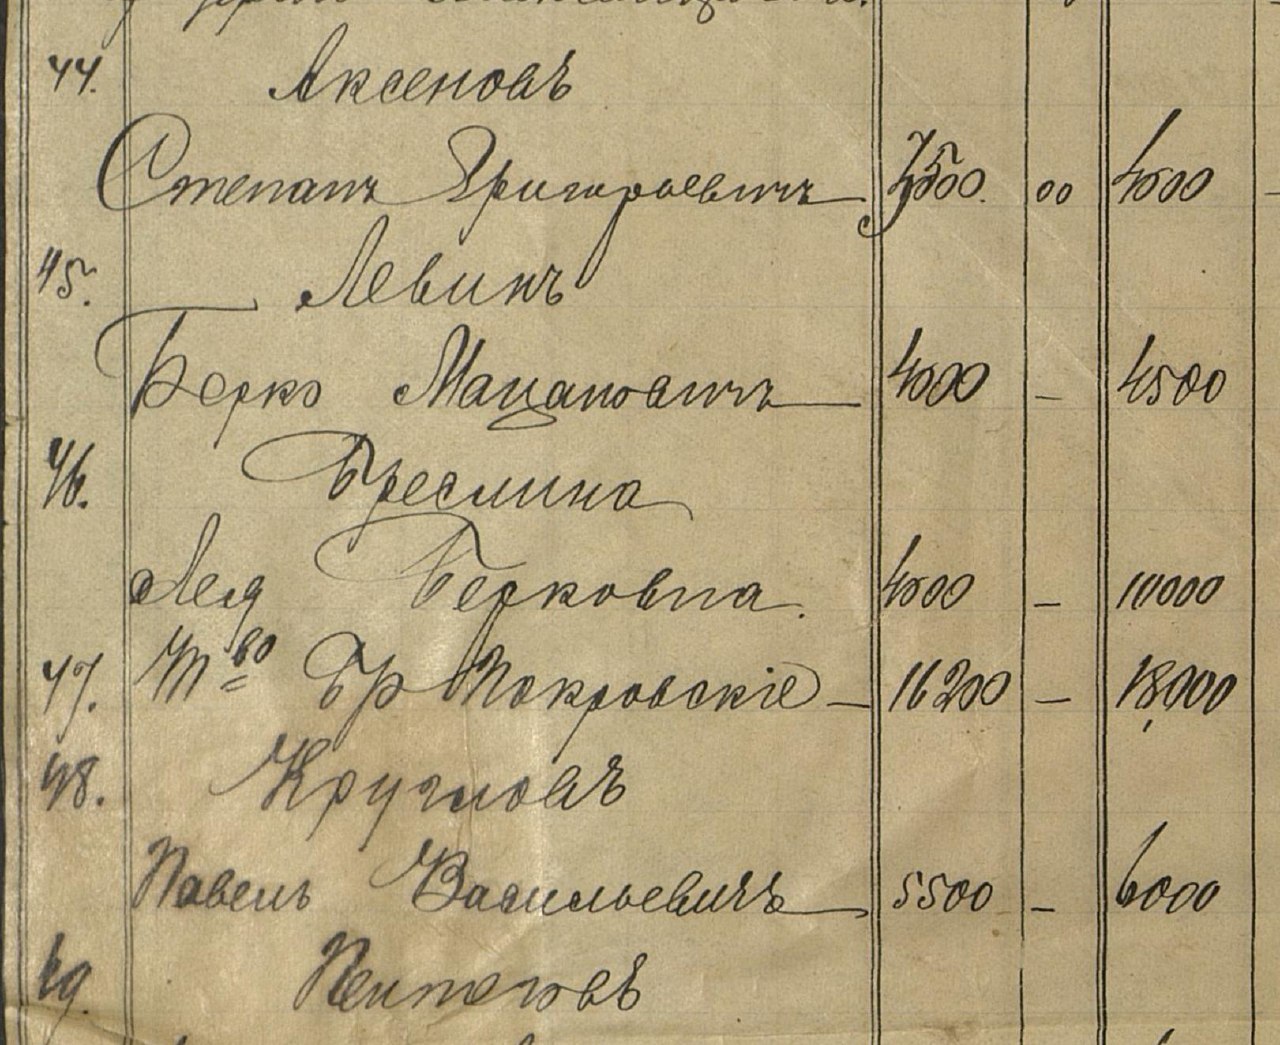 44. Аксеновъ
Степанъ Григорьевичъ 3500. 00 4000
45. Левинъ
Берко 4000 – 4500
46. Бреслина
Лея Берковна. 4000 – 10000
47. Т<sup>во</sup> Бр Покровскіе – 16200 – 18,000
48. Кругловъ
Павелъ Васильевичъ 5500 – 6000
49.